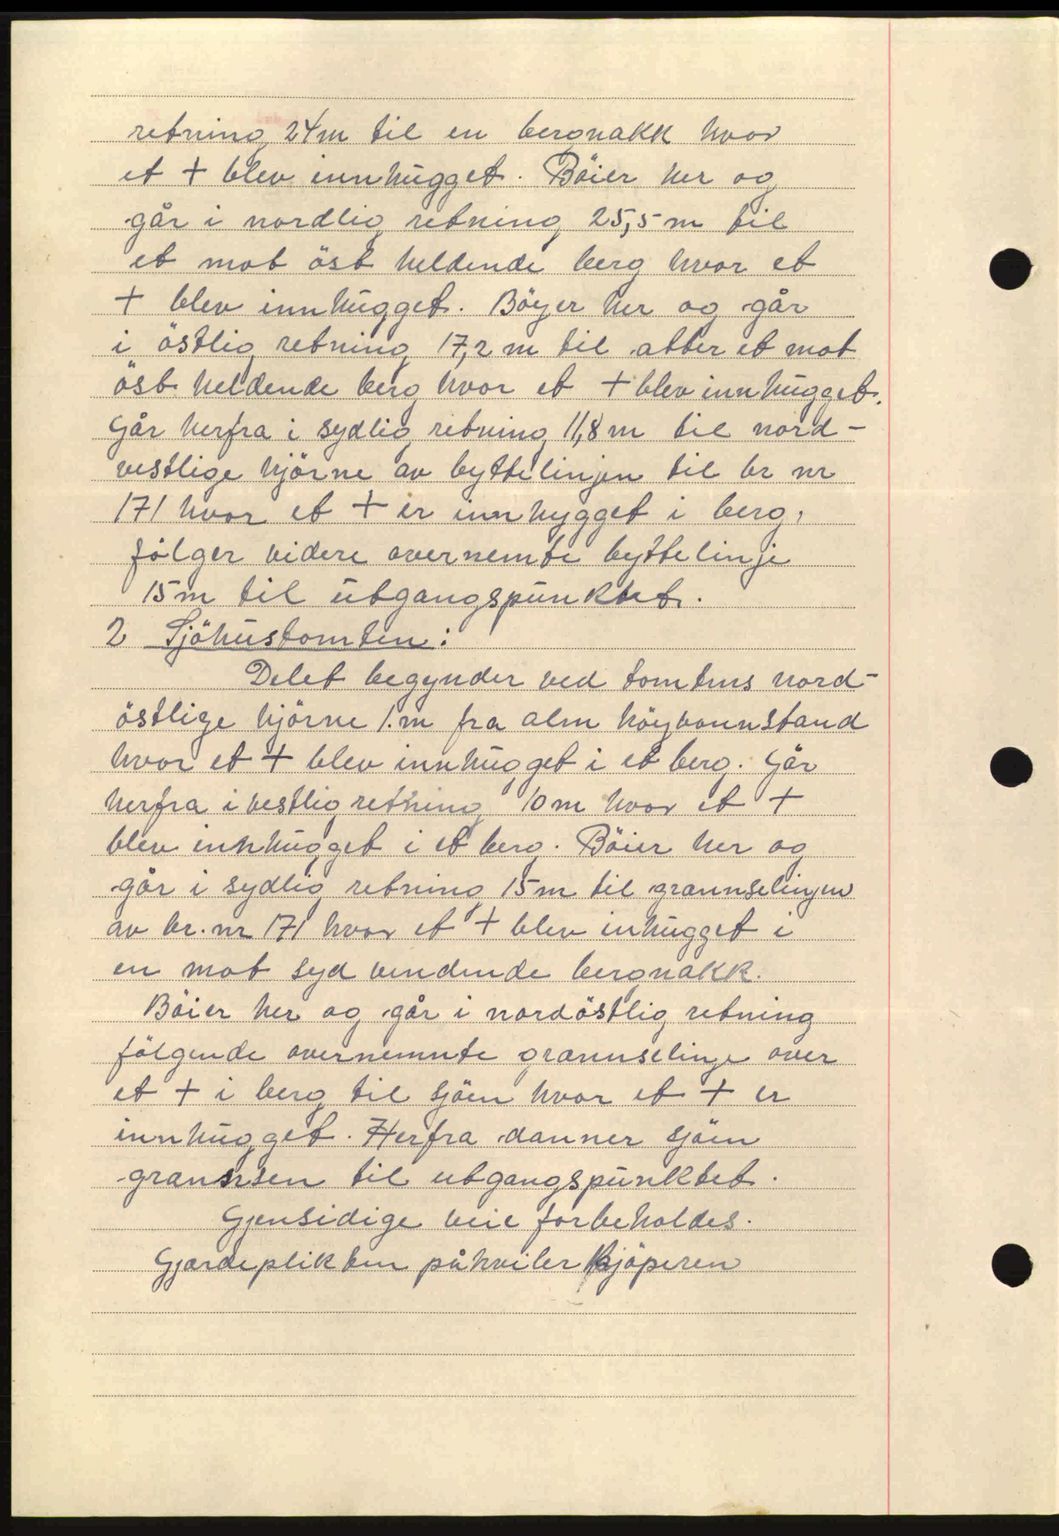 retning 24m til en bergnakk hvor
et + blev innhugget. Böier her og
går i nordlig retning 25,5 m til
et mot öst heldende berg hvor et
+ blev innhugget. Böyer her og går
i östlig retning 17,2 m til atter et mot
öst heldende berg hvor et + blev innhugget.
Går herfra i sydlig retning 11,8 m til nord-
vestlige hjörne av byttelinjen til br nr
171 hvor et + er innhygget i berg,
fölger videre overnemte byttelinje
15m til utgangspunktet.
2 Sjöhustomten:
Delet begynder ved tomtens nord-
östlige hjörne 1.m fra alm höyvannstand
hvor et + blev innhugget i et berg. Går
herfra i vestlig retning 10m hvor et +
blev innhugget i et berg. Böier her og
går i sydlig retning 15m til grannselinjen
av br. nr 171 hvor et + blev inhugget i
en mot syd vendende bergnakk.
Böier her og går i nordöstlig retning
fölgende overnemnte grannselinje over
et + i berg til sjöen hvor et + er
innhugget. Herfra danner sjöen
grannsen til utgangspunktet.
Gjensidige veie forbeholdes.
Gjerdeplikten påhviler kjöperen